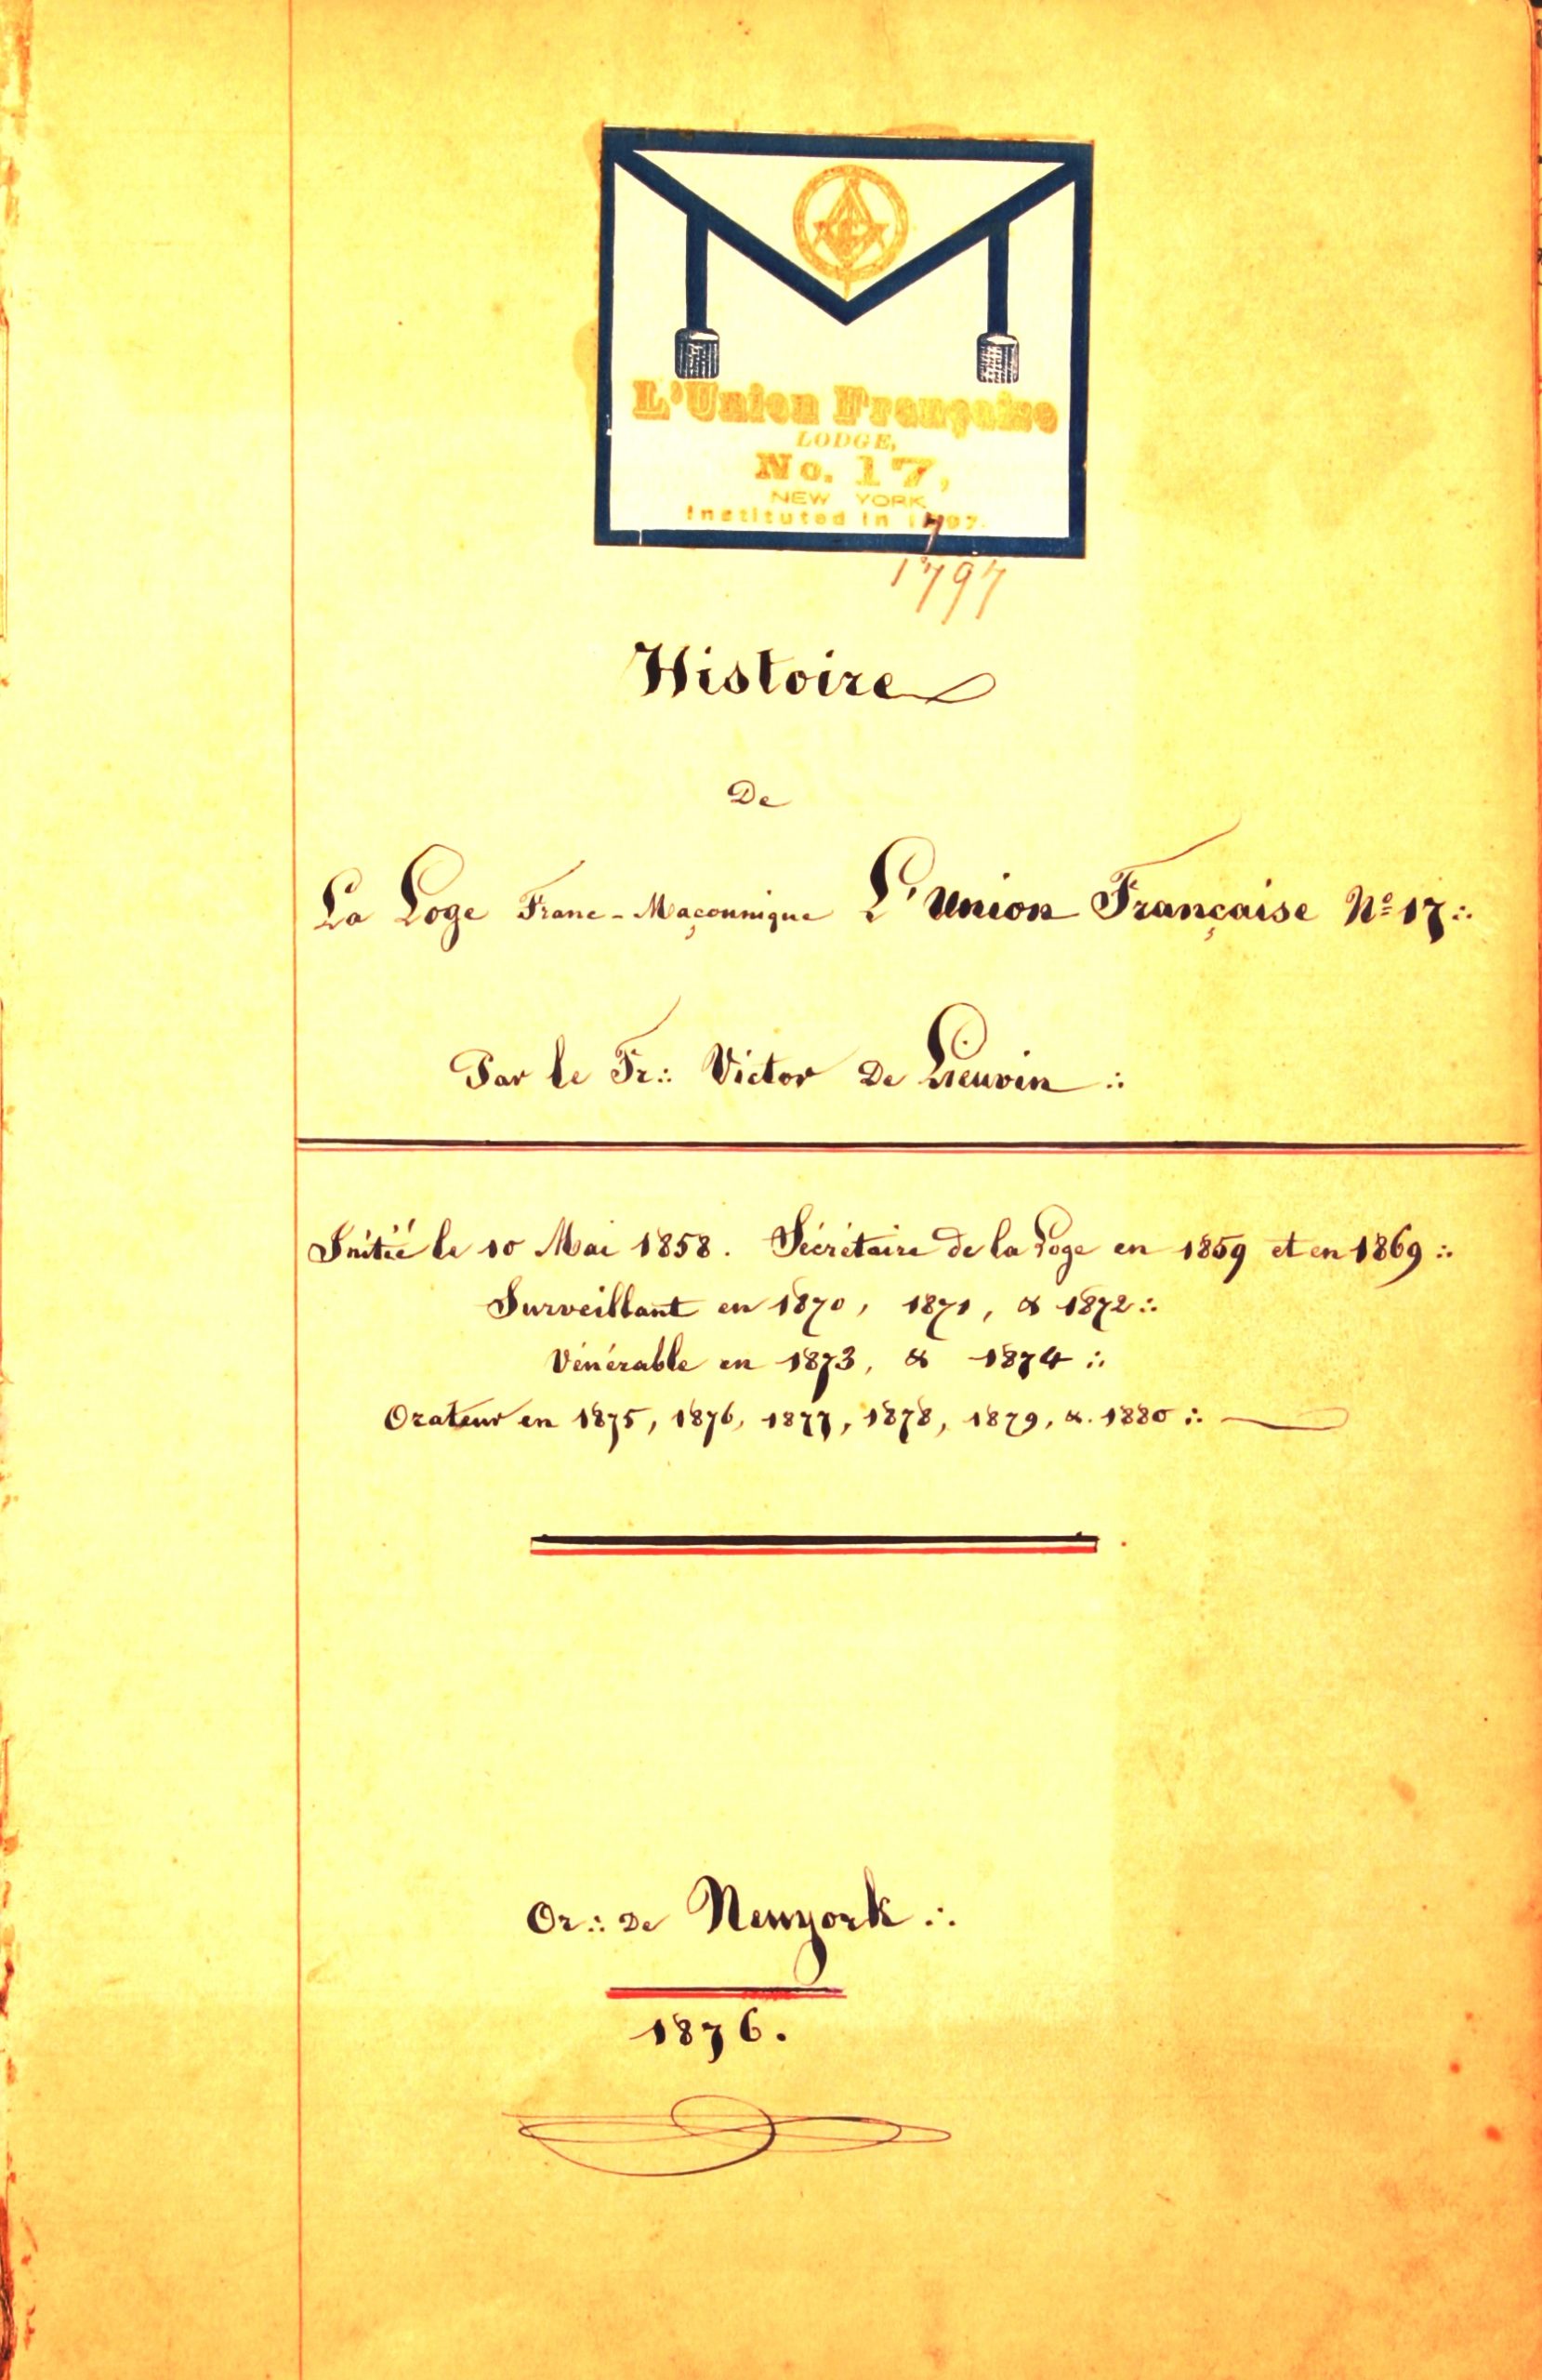 L'Union Française
LODGE,
No. 17,
NEW YORK
Instituted in 1797.
1797
Histoire
De
La Loge Franc-Maçonnique L'Union Française Nº 17 ∴
Par le Fr∴ Victor De Lieuvin ∴
Initié le 10 Mai 1858. Sécrétaire de la Loge en 1859 et en 1869 ∴
Surveillant en 1870, 1871, & 1872 ∴
Vénérable en 1873, & 1874 ∴
Orateur en 1875, 1876, 1877, 1878, 1879, & 1880 ∴
Or∴ De Newyork ∴
1876.